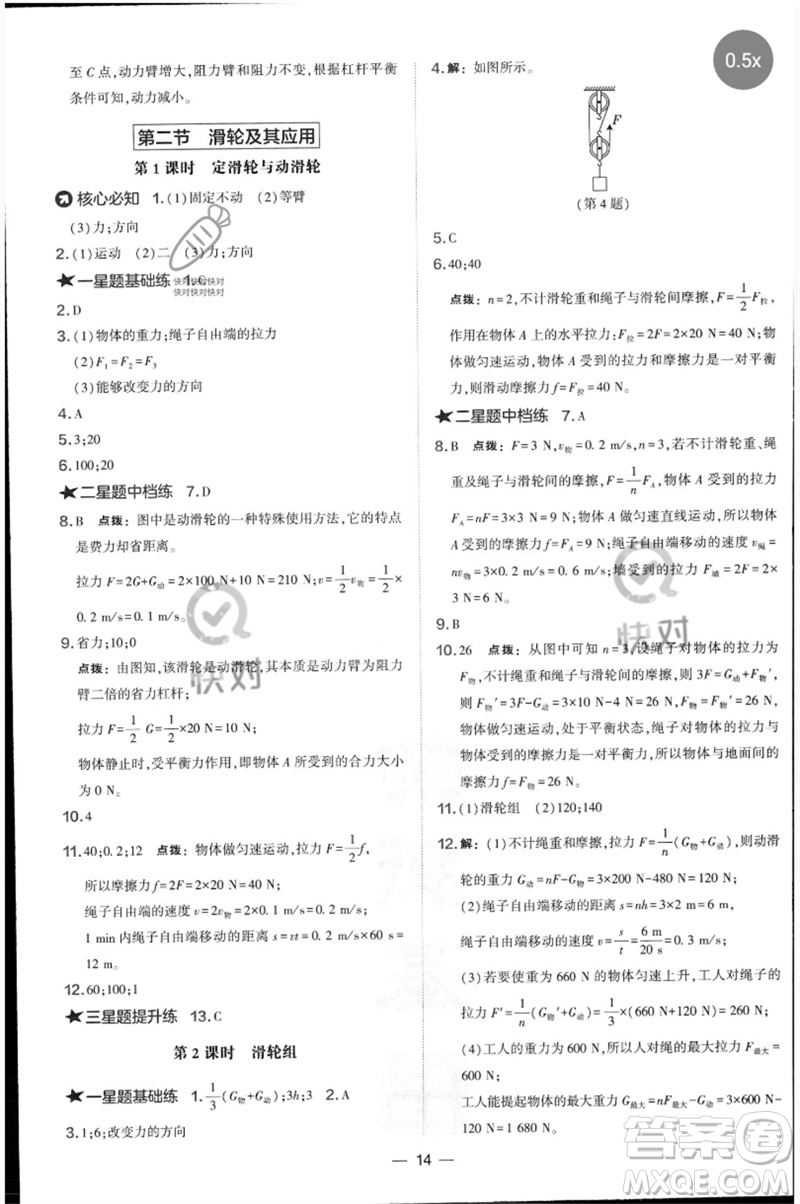 至 C 点,动力臂增大,阻力臂和阻力不变,根据杠杆平衡
条件可知,动力减小。
第二节 滑轮及其应用
第 1 课时 定滑轮与动滑轮
核心必知 1.(1)固定不动 (2)等臂
(3)力;方向
2.(1)运动 (2)二 (3)力;方向
一星题基础练 1.C
快对快对快对
快对快对快对
2.D
3.(1)物体的重力;绳子自由端的拉力
(2)F₁=F₂=F₃
(3)能够改变力的方向
4.A
5.3;20
6.100;20
二星题中档练 7.D
8.B 点拨:图中是动滑轮的一种特殊使用方法,它的特点
是费力却省距离。
拉力 F=2G+G动=2×100 N+10 N=210 N;v=1/2 v物=1/2×
0.2 m/s=0.1 m/s。
9.省力;10;0
点拨:由图知,该滑轮是动滑轮,其本质是动力臂为阻力
臂二倍的省力杠杆;
拉力 F=1/2 G=1/2×20 N=10 N;
物体静止时,受平衡力作用,即物体 A 所受的合力大小
为 0 N。
10.4
11.40;0.2;12 点拨:物体做匀速运动,拉力 F=1/2 f,
所以摩擦力 f=2F=2×20 N=40 N;
绳子自由端的速度 v=2v物=2×0.1 m/s=0.2 m/s;
1 min内绳子自由端移动的距离 s=vt=0.2 m/s×60 s=
12 m。
12.60;100;1
三星题提升练 13.C
第 2 课时 滑轮组
一星题基础练 1.1/3(G物+G动);3h;3 2.A
3.1;6;改变力的方向
4.解:如图所示。
F
(第 4 题)
5.C
6.40;40
点拨:n=2,不计滑轮重和绳子与滑轮间摩擦,F=1/2 F拉,
作用在物体 A 上的水平拉力:F拉=2F=2×20 N=40 N;
物体做匀速运动,物体 A 受到的拉力和摩擦力是一对平衡
力,则滑动摩擦力 f=F拉=40 N。
二星题中档练 7.A
8.B 点拨:F=3 N,v物=0.2 m/s,n=3,若不计滑轮重、绳
重及绳子与滑轮间的摩擦,F=1/n F_A,物体 A 受到的拉力
F_A=nF=3×3 N=9 N;物体 A 做匀速直线运动,所以物体
A 受到的摩擦力 f=F_A=9 N;绳子自由端移动的速度 v绳=
nv物=3×0.2 m/s=0.6 m/s;墙受到的拉力 F墙=2F=2×
3 N=6 N。
9.B
10.26 点拨:从图中可知 n=3,设绳子对物体的拉力为
F物,不计绳重和绳子与滑轮间的摩擦,则 3F=G动+F物′,
则 F物′=3F-G动=3×10 N-4 N=26 N,F物=F物′=26 N,
物体做匀速运动,处于平衡状态,绳子对物体的拉力与
物体受到的摩擦力是一对平衡力,所以物体与地面间的
摩擦力 f=F物=26 N。
11.(1)滑轮组 (2)120;140
12.解:(1)不计绳重和摩擦,拉力 F=1/n(G物+G动),则动滑
轮的重力 G动=nF-G物=3×200 N-480 N=120 N;
(2)绳子自由端移动的距离 s=nh=3×2 m=6 m,
绳子自由端移动的速度 v=s/t=6 m/20 s=0.3 m/s;
(3)若要使重为 660 N 的物体匀速上升,工人对绳子的
拉力 F′=1/n(G物+G动)=1/3×(660 N+120 N)=260 N;
(4)工人的重力为 600 N,所以工人对绳的最大拉力 F最大=
600 N,
工人能提起物体的最大重力 G最大=nF最大-G动=3×600 N-
120 N=1 680 N。
14
0.5x
快对
快对
答案圈
MXQE.COM